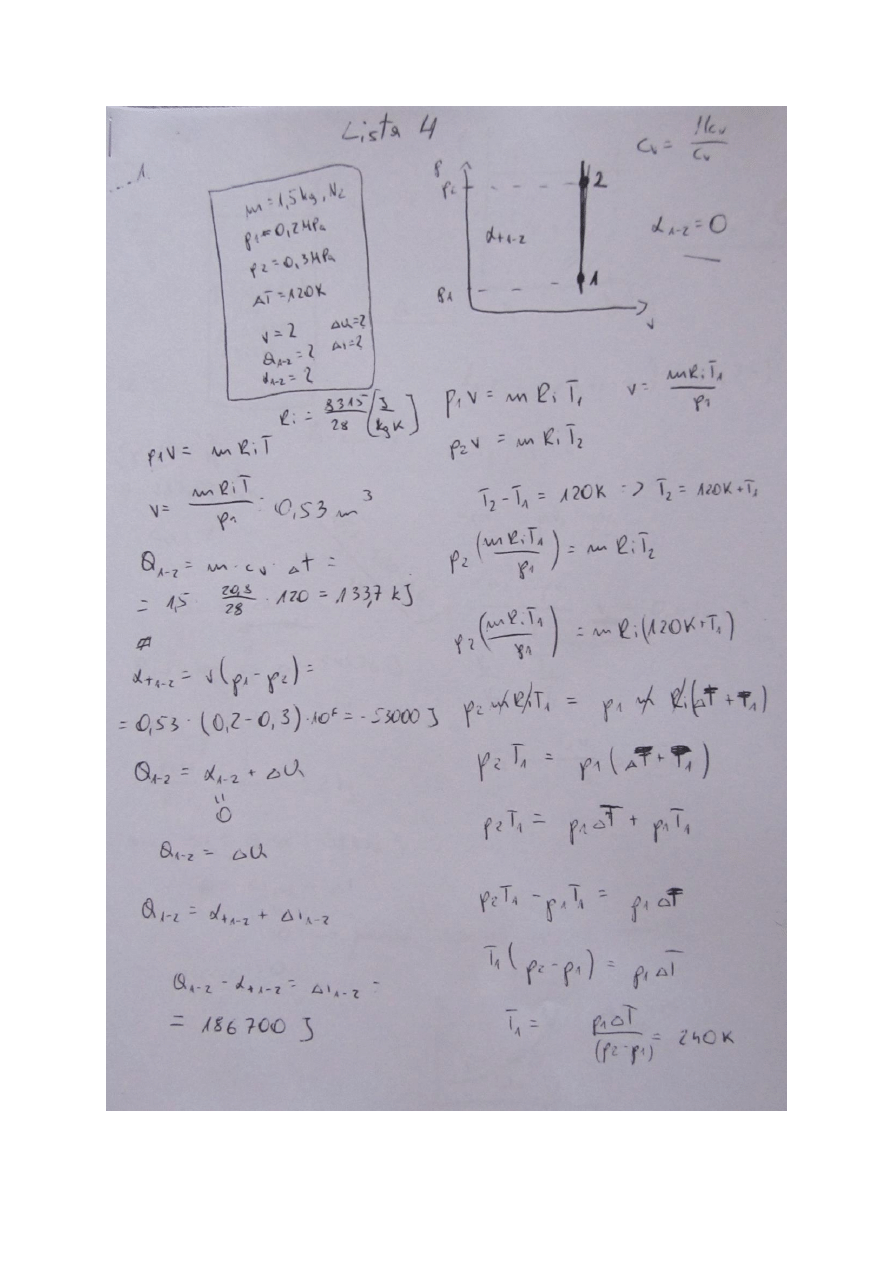 Lista 4
1.
m = 1,5 kg, N₂
p1 = 0,2 MPa
p2 = 0,3 MPa
ΔT = 120K
V = ? ΔU = ?
Q₁₋₂ = ? Δi = ?
L₁₋₂ = ?
p
p2
p1
Lt₁₋₂
2
1
v
Cv =
Cv
L₁₋₂ = 0
Ri = 8315/28 [J/kgK]
p1V = m Ri T
V = m Ri T / p1 = 0,53 m³
Q₁₋₂ = m · cv · Δt =
= 1,5 · 20,8/28 · 120 = 133,7 kJ
Lt₁₋₂ = V(p1 - p2) =
= 0,53 · (0,2 - 0,3) · 10⁶ = - 53000 J
Q₁₋₂ = L₁₋₂ + ΔU
"
0
Q₁₋₂ = ΔU
Q₁₋₂ = Lt₁₋₂ + Δi₁₋₂
Q₁₋₂ - Lt₁₋₂ = Δi₁₋₂ =
= 186 700 J
p1V = m Ri T1 V = m Ri T1 / p1
p2V = m Ri T2
T2 - T1 = 120K => T2 = 120K + T1
p2 (m Ri T1 / p1) = m Ri T2
p2 (m Ri T1 / p1) = m Ri (120K + T1)
p2 m Ri T1 = p1 m Ri (ΔT + T1)
p2 T1 = p1 (ΔT + T1)
p2T1 = p1ΔT + p1T1
p2T1 - p1T1 = p1ΔT
T1 (p2 - p1) = p1ΔT
T1 = p1ΔT / (p2 - p1) = 240K